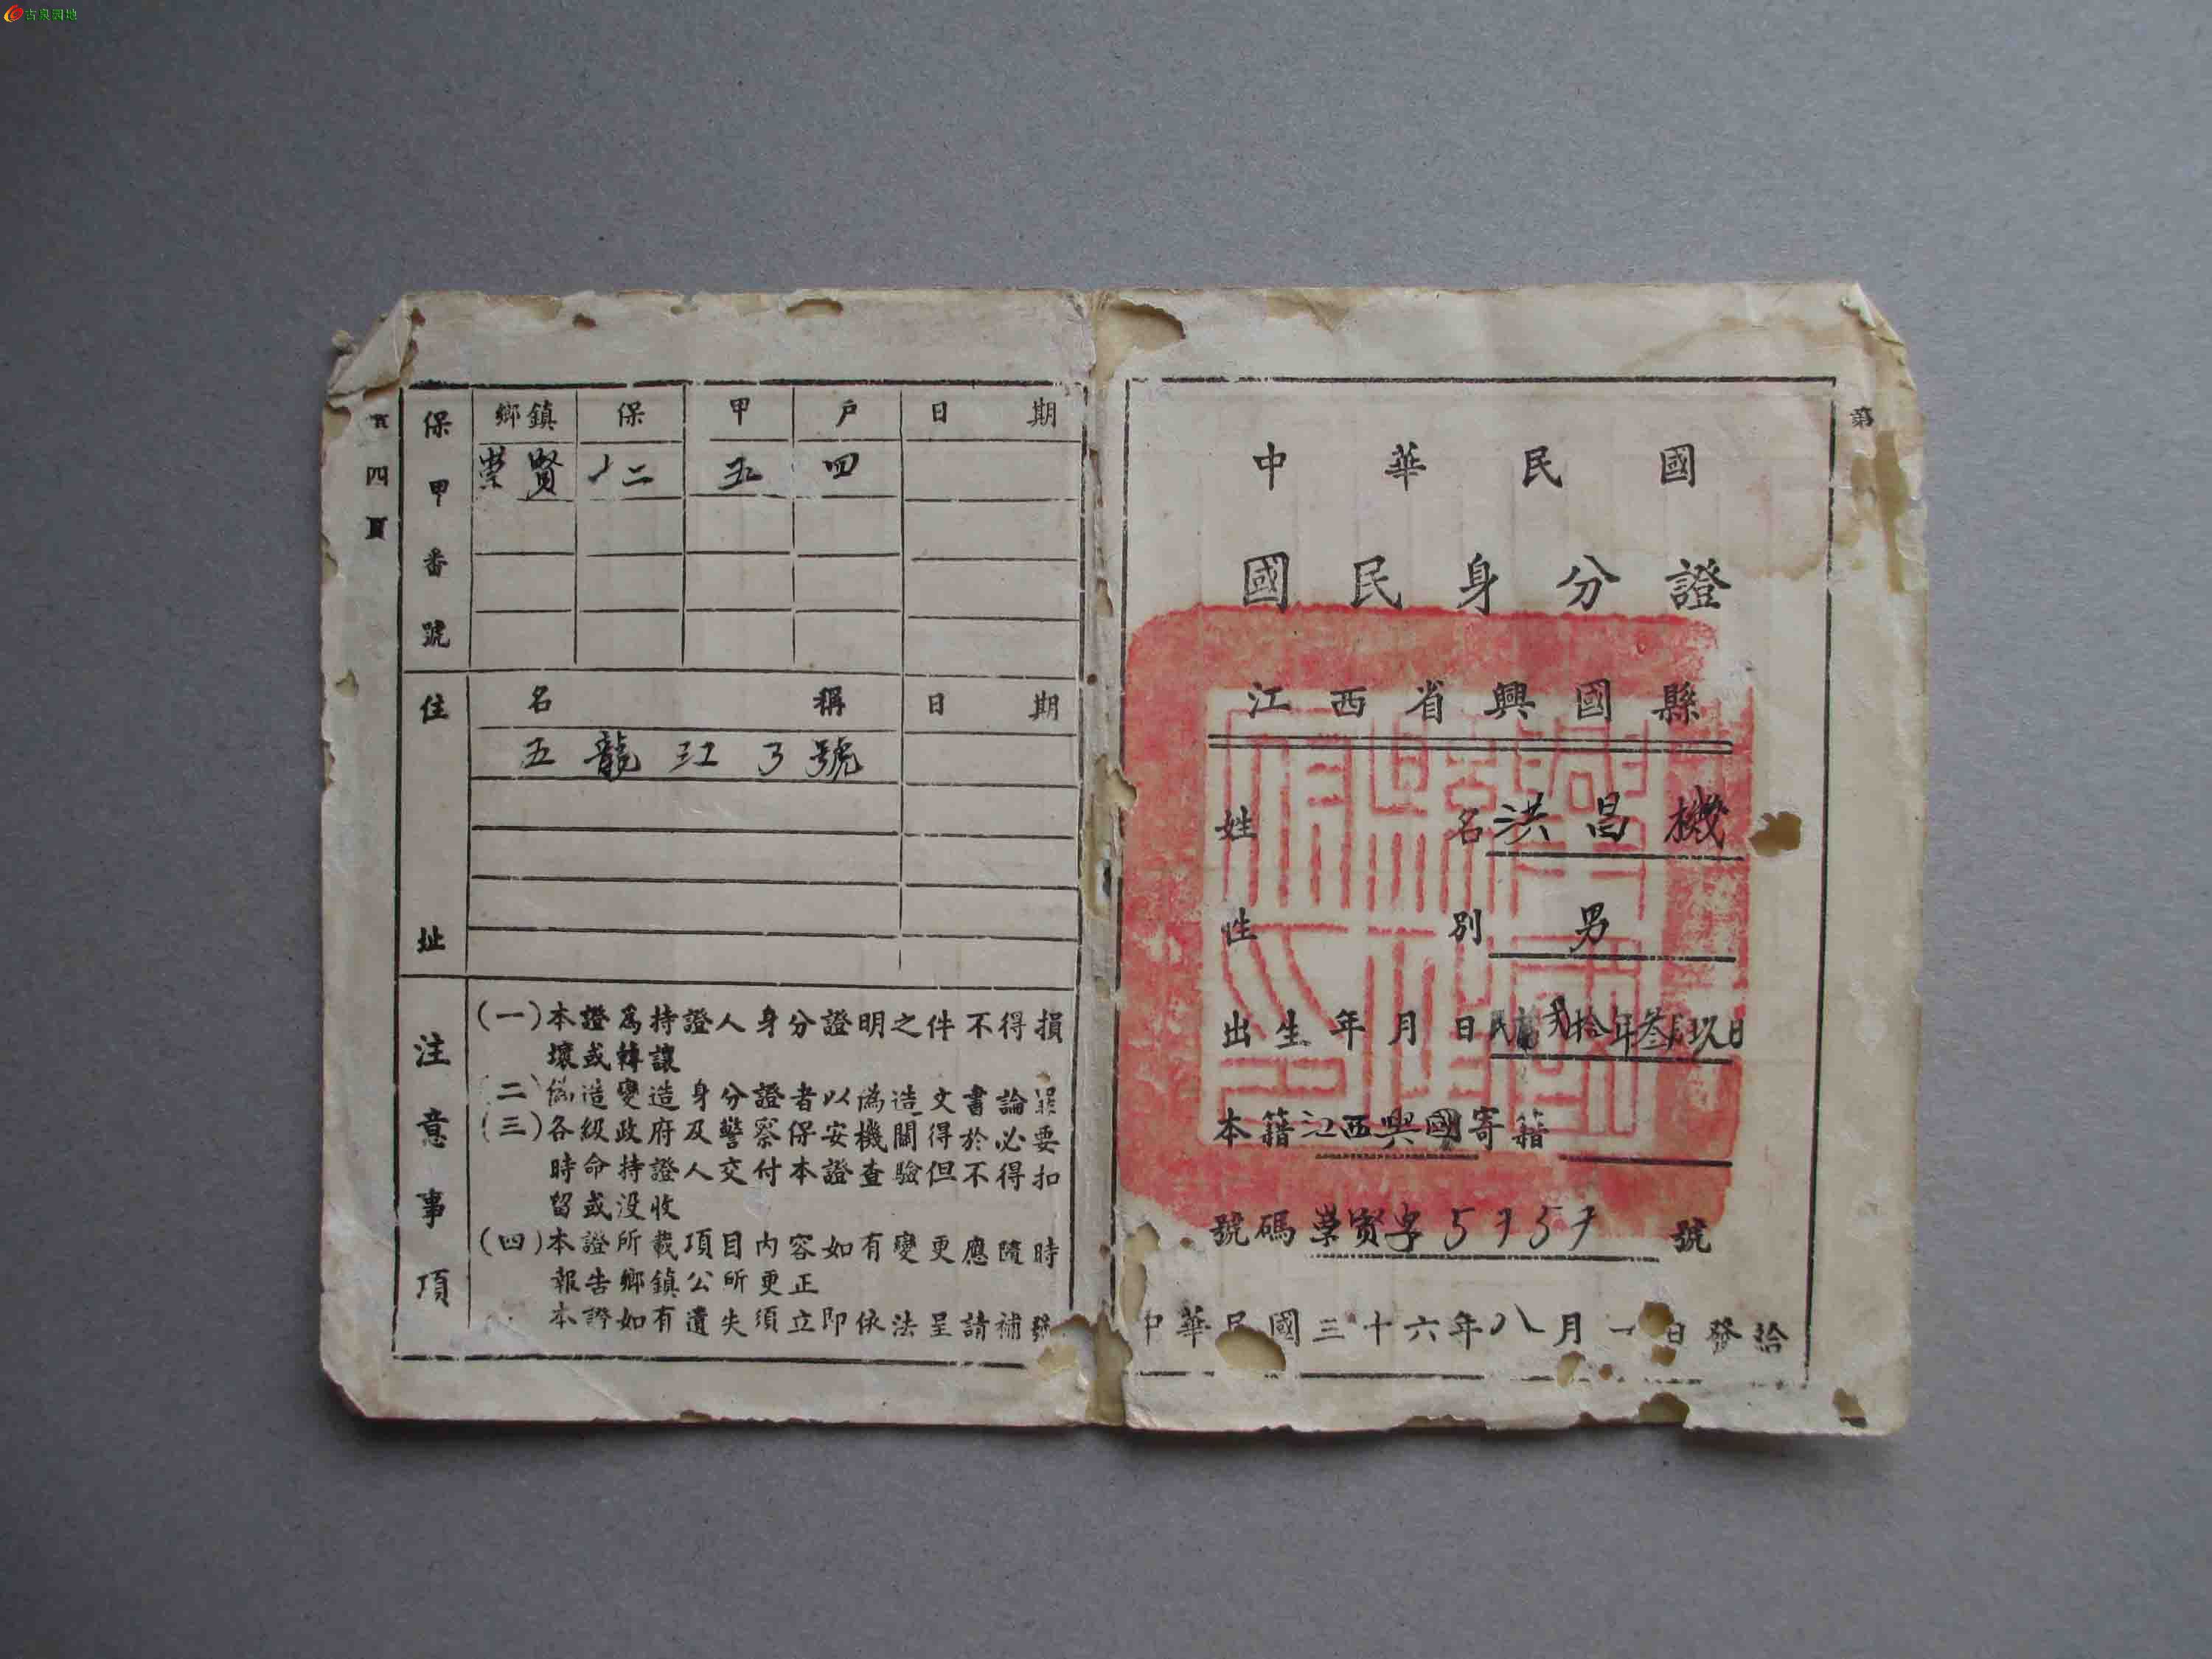 古泉园地
保甲番號
鄉鎮 保 甲 户 日期
崇賢 十二 五 四
四
住址
名稱 日期
五龍江 號
注意事項
(一)本證為持證人身分證明之件不得損
壞或轉讓
(二)偽造變造身分證者以偽造文書論罪
(三)各級政府及警察保安機關得於必要
時命持證人交付本證查驗但不得扣
留或没收
(四)本證所載項目內容如有變更應隨時
報告鄉鎮公所更正
本證如有遺失須立即依法呈請補發
第
中華民國
國民身分證
江西省興國縣
姓名 洪昌機
性別 男
出生年月日 民國貳拾年叁月玖日
本籍 江西興國 寄籍
號碼 崇賢字 號
中華民國三十六年八月一日發給